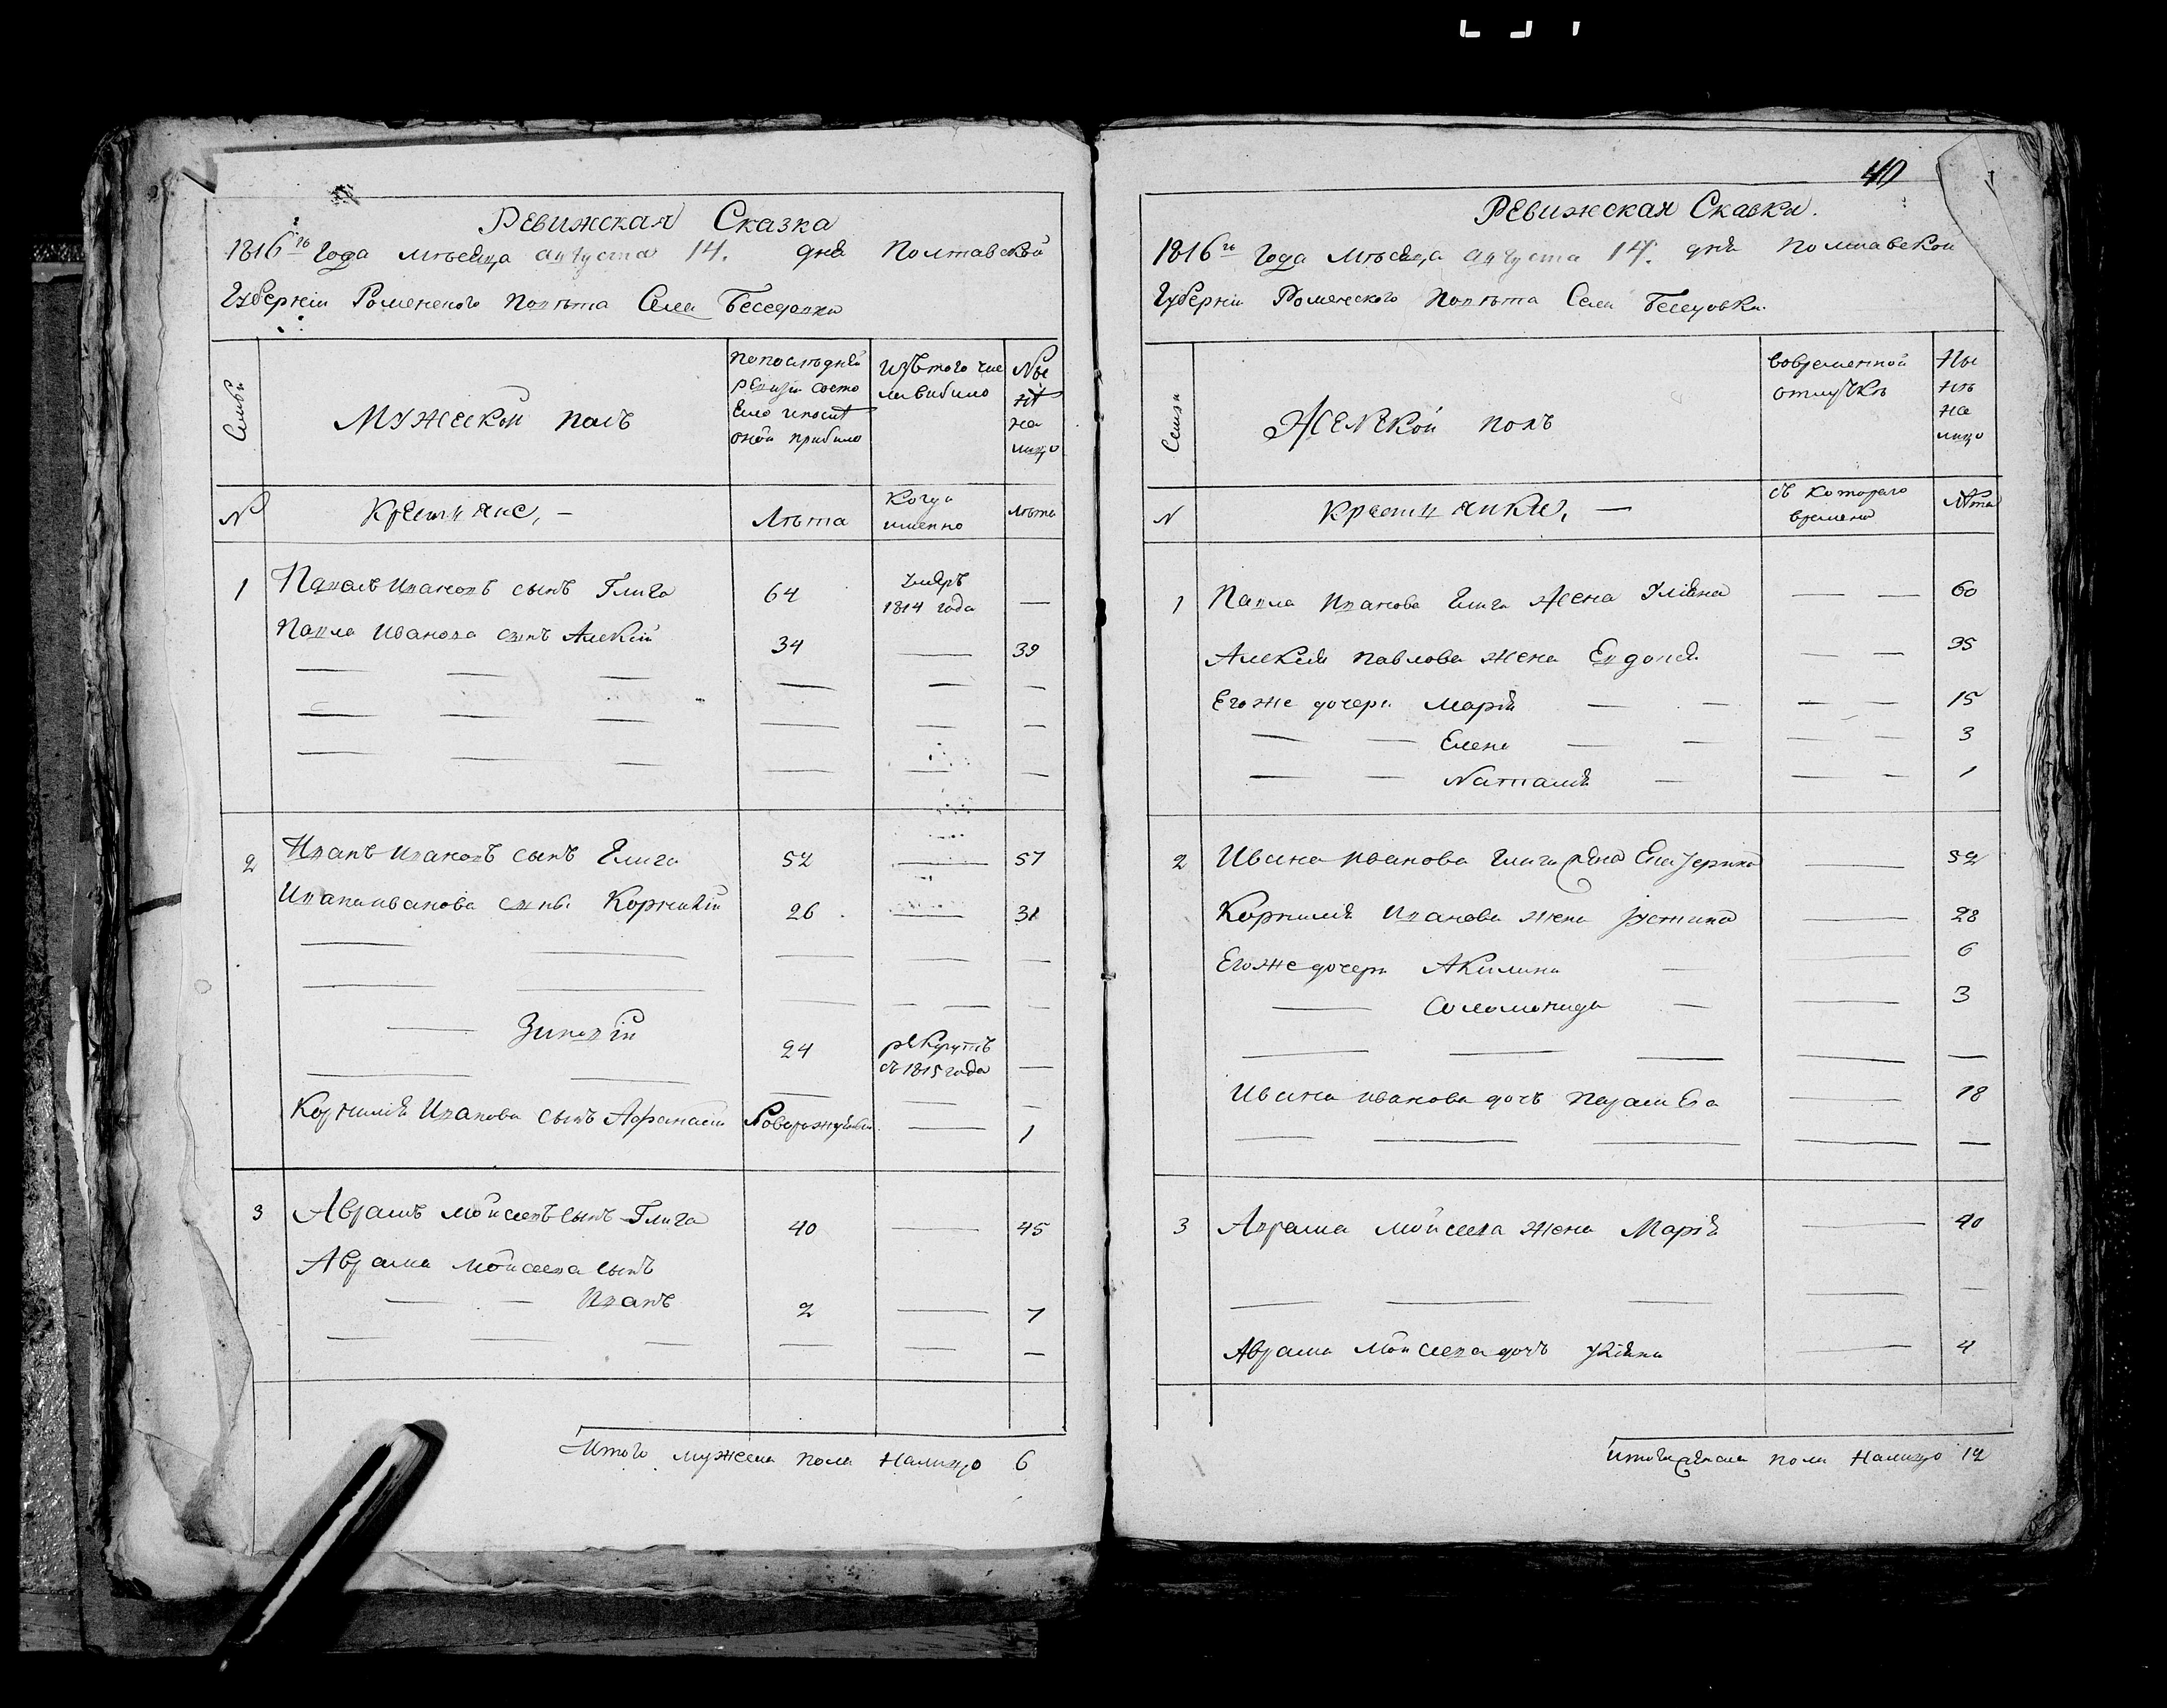 Ревижская Сказка
1816го Года месяца августа 14. дня Полтавской
Губернїи Роменского Повѣта Села Беседовки
Семьи
Мужеской полъ
попослѣдней
ревизїи состо
яло ипослѣ
оной прибыло
Изътого чис
ла выбыло
Ны
нѣ
на
лицо
N
Крестьяне, —
Лѣта
Когда
именно
Лѣта
1 Павелъ Ивановъ сынъ Глига 64 Умеръ
1814 года —
Павла Иванова сынъ Алексїй 34 — 39
2 Иванъ Ивановъ сынъ Глига 52 — 57
Ивана иванова сыны Корнилїй 26 — 31
— Зиновїй 24 рекрутъ
съ 1815 года —
Корнилїя Иванова сынъ Афанасїй Новорожденный — 1
3 Аврамъ Мойсеевъ сынъ Глига 40 — 45
Аврама Мойсеева сынъ
— — Иванъ 2 — 7
Итого мужеска пола налицо 6
40
Ревижская Сказка.
1816го Года месяца августа 14. дня Полтавской
Губернїи Роменского Повѣта Села Беседовки.
Семьи
Женской полъ
вовременной
отлучкѣ
Ны
нѣ
на
лицо
N
Крестьянки, —
съ которого
времени
Лѣта
1 Павла Иванова Глига жена Улїяна — — 60
Алексїя Павлова жена Евдокїя — — 35
Егоже дочери Марїя — — — — 15
— — Елена — — — — 3
— — Наталїя — — — 1
2 Ивана Иванова Глига жена Екатерина — 52
Корнилїя Иванова жена Іустина — 28
Егоже дочери Акилина — — 6
— Соломонида — — 3
Ивана иванова дочь Параска — 18
3 Аврама Мойсеева жена Марїя — 40
Аврама Мойсеева дочь Улїяна — 4
Итого женска пола налицо 12